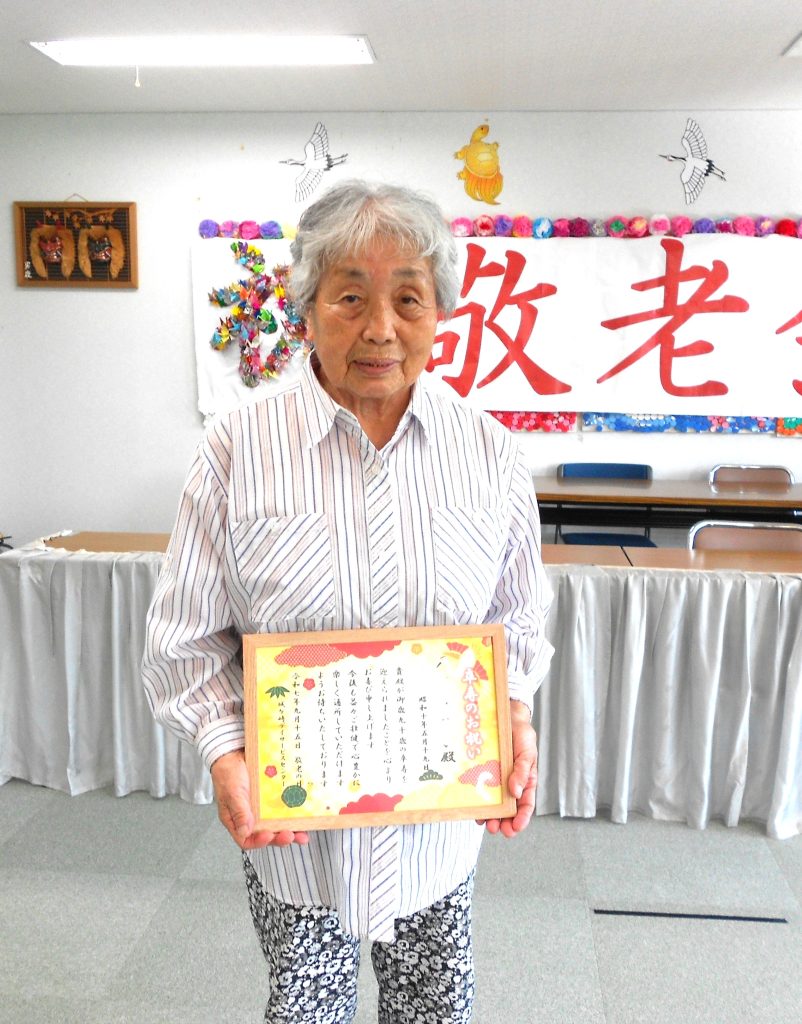 敬老
卒寿のお祝い
殿
昭和十年五月十九日
貴殿が御歳九十歳の卒寿を
迎えられましたこと心より
お喜び申し上げます
今後も益々ご壮健で心豊かに
楽しく通所していただけます
ようお待ちいたしております
令和七年九月十五日 敬老の日